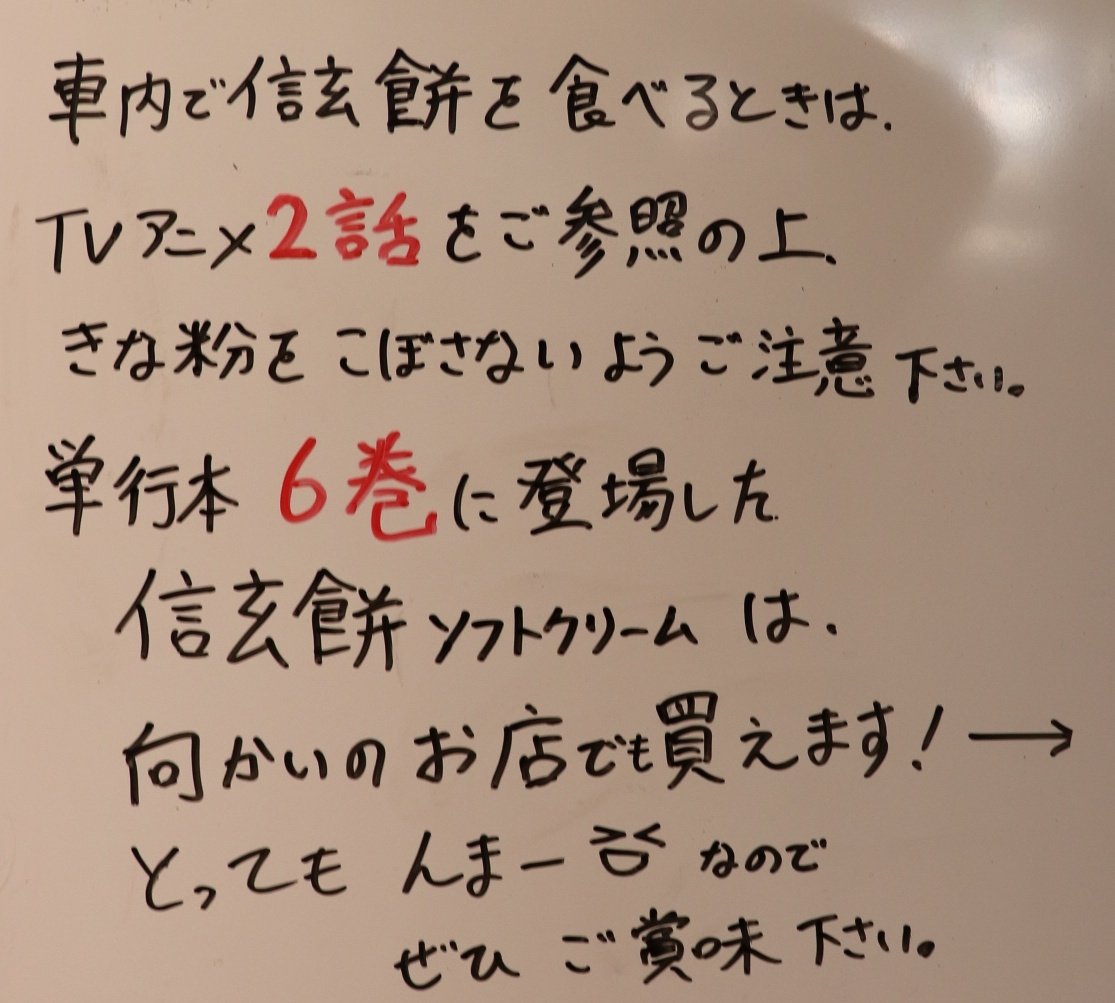 車内で信玄餅を食べるときは、
TVアニメ2話をご参照の上、
きな粉をこぼさないようご注意下さい。
単行本6巻に登場した
信玄餅ソフトクリームは、
向かいのお店でも買えます!→
とってもんまー>ㅁ<なので
ぜひご賞味下さい。